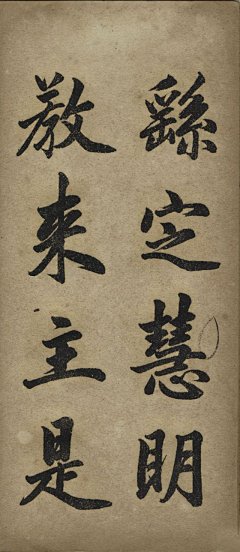 繇定慧明
教来主是